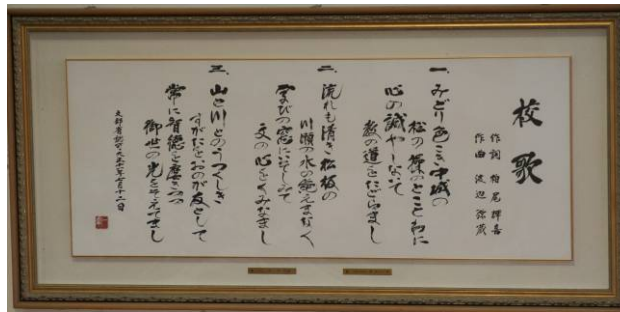 校歌
作詞 柏尾 輝喜
作曲 渡辺 弥蔵
一、みどり色こき中城の
松の操のとことわに
心の誠やしないて
教の道をたどらまし
二、流れも清き松板の
川瀬の水の絶えまなく
学びの窓にいそしみて
文の心をくみなまし
三、山と川とのうつくしき
すがたをおのが友として
常に智徳を磨きつつ
御世の光をそえてまし
文部省認可 年七月十二日